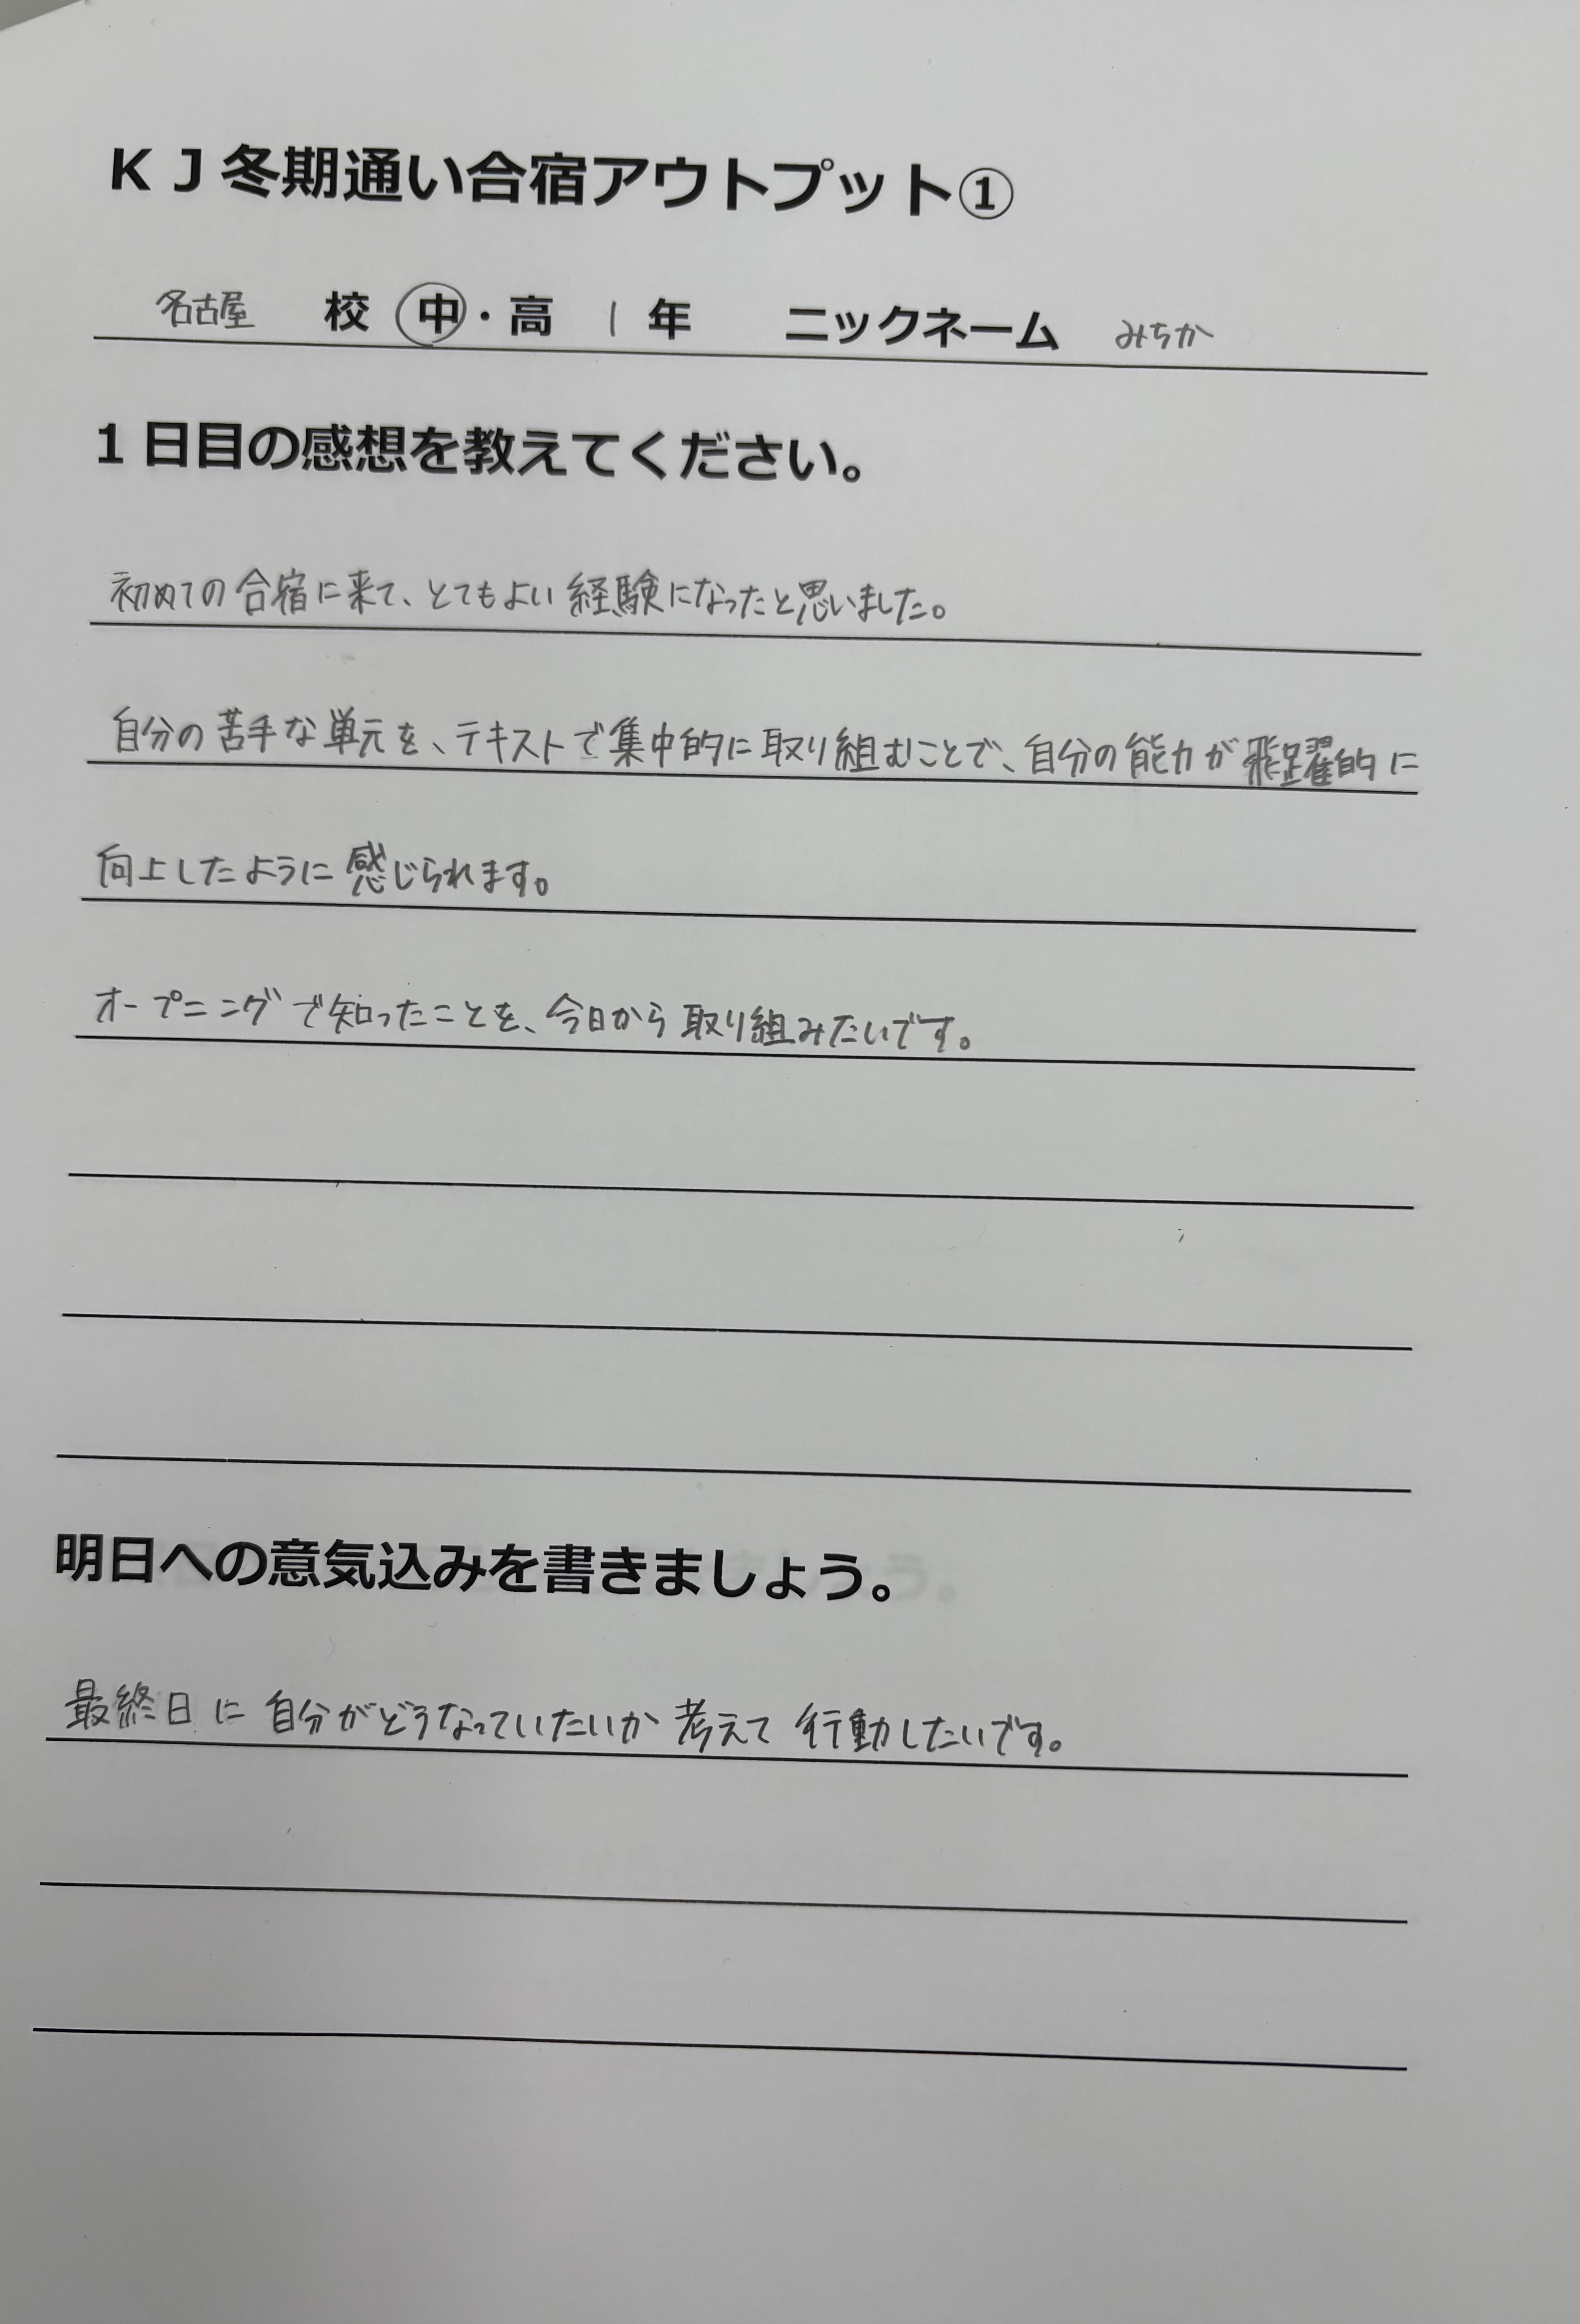 ＫＪ冬期通い合宿アウトプット①
名古屋 校 中・高 1 年 ニックネーム みちか
１日目の感想を教えてください。
初めての合宿に来て、とてもよい経験になったと思いました。
自分の苦手な単元を、テキストで集中的に取り組むことで、自分の能力が飛躍的に
向上したように感じられます。
オープニングで知ったことを、今日から取り組みたいです。
明日への意気込みを書きましょう。
最終日に自分がどうなっていたいか考えて行動したいです。